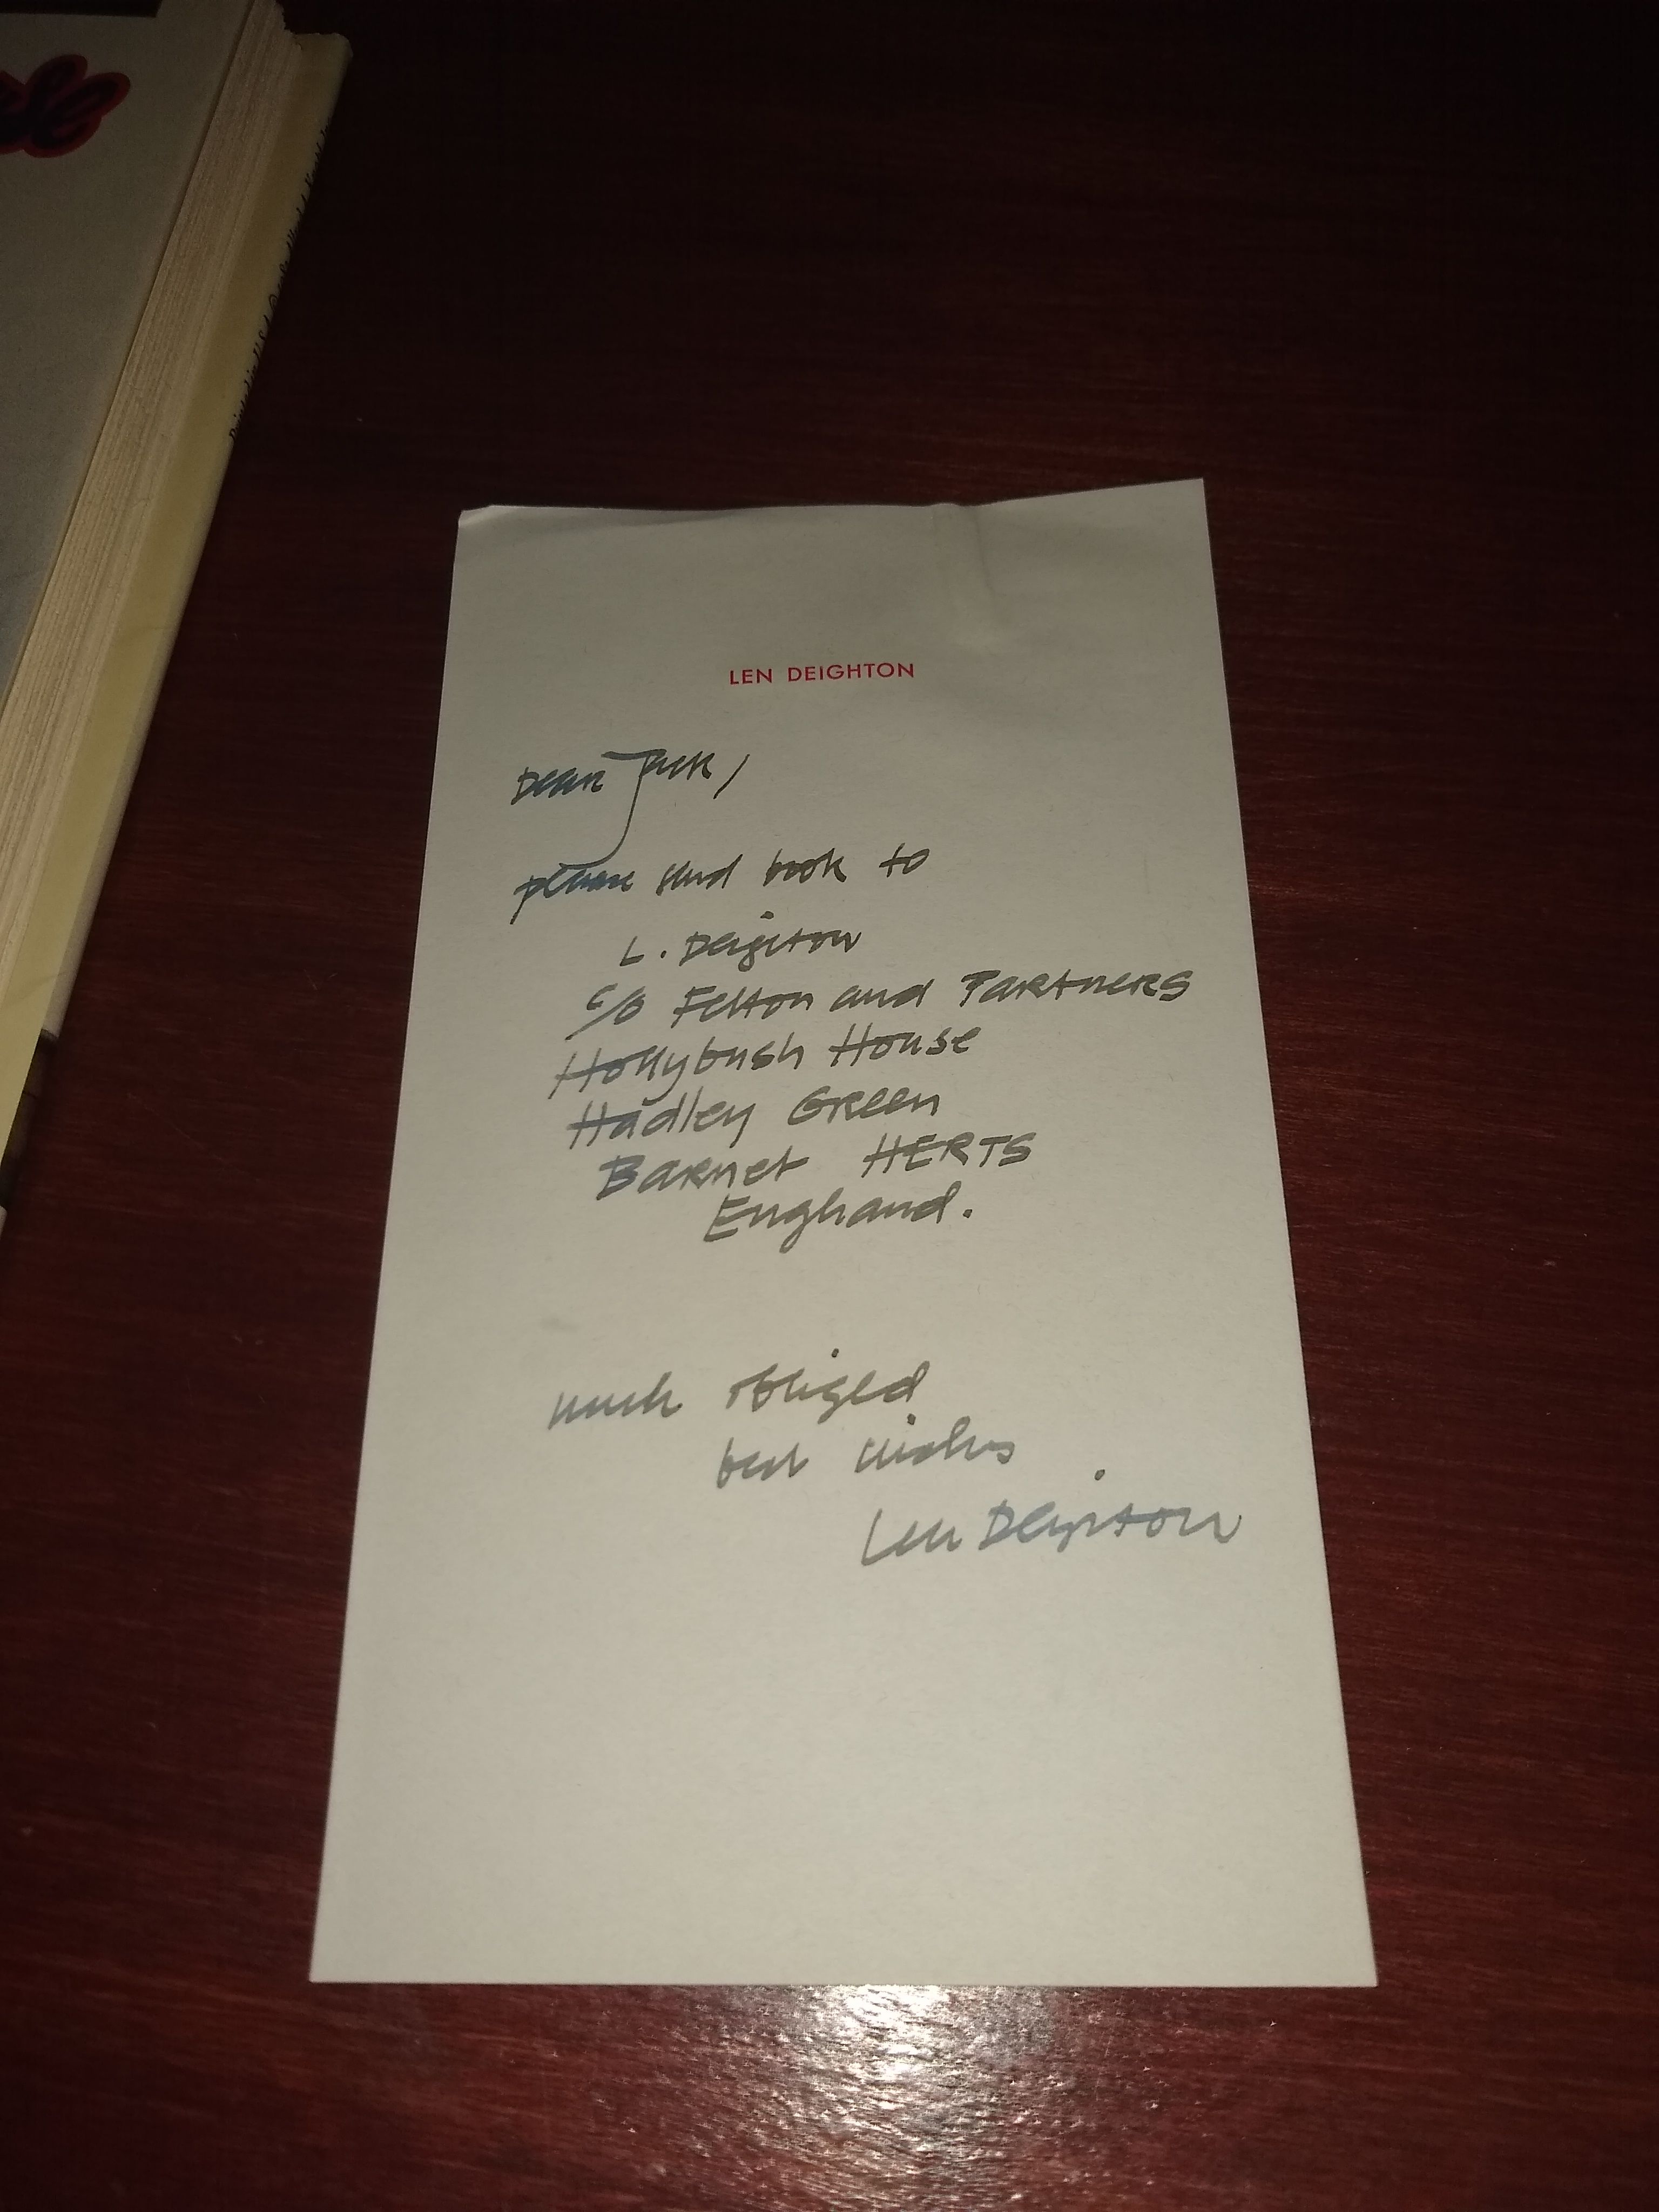 LEN DEIGHTON
Dear Jack,
please send book to
L. Deighton
c/o Felton and Partners
Hollybush House
Hadley Green
Barnet HERTS
England.
much obliged
best wishes
Len Deighton